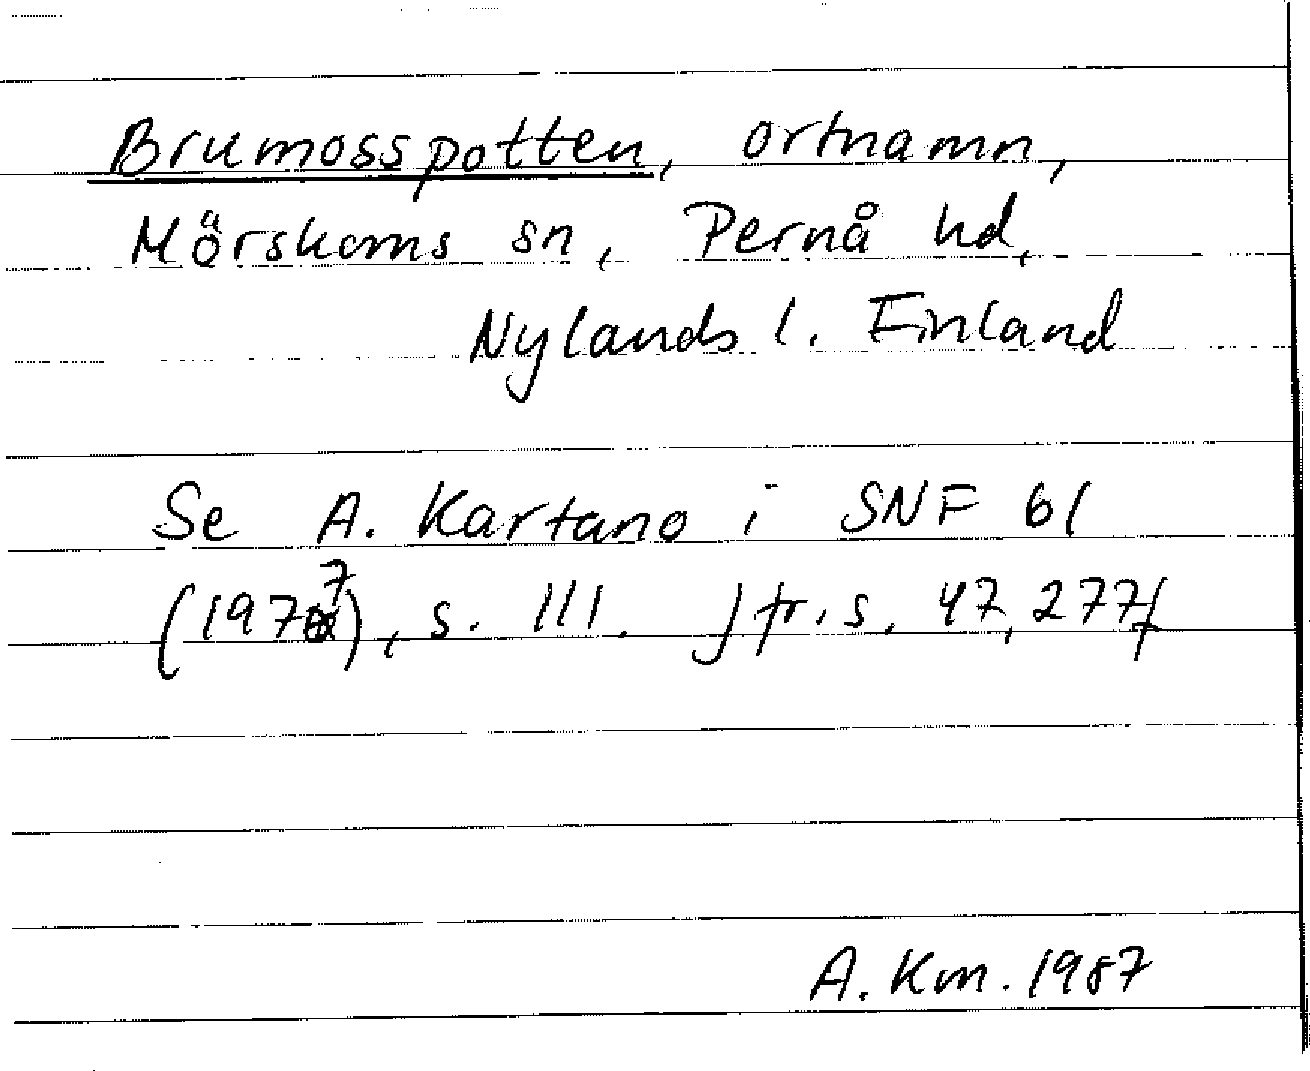 Brumosspotten, ortnamn,
Mörskoms sn, Pernå hd,
Nylands l. Finland
Se A. Kartano i SNF 61
(1977), s. 111. Jfr. s. 47, 277f
A. Km. 1987